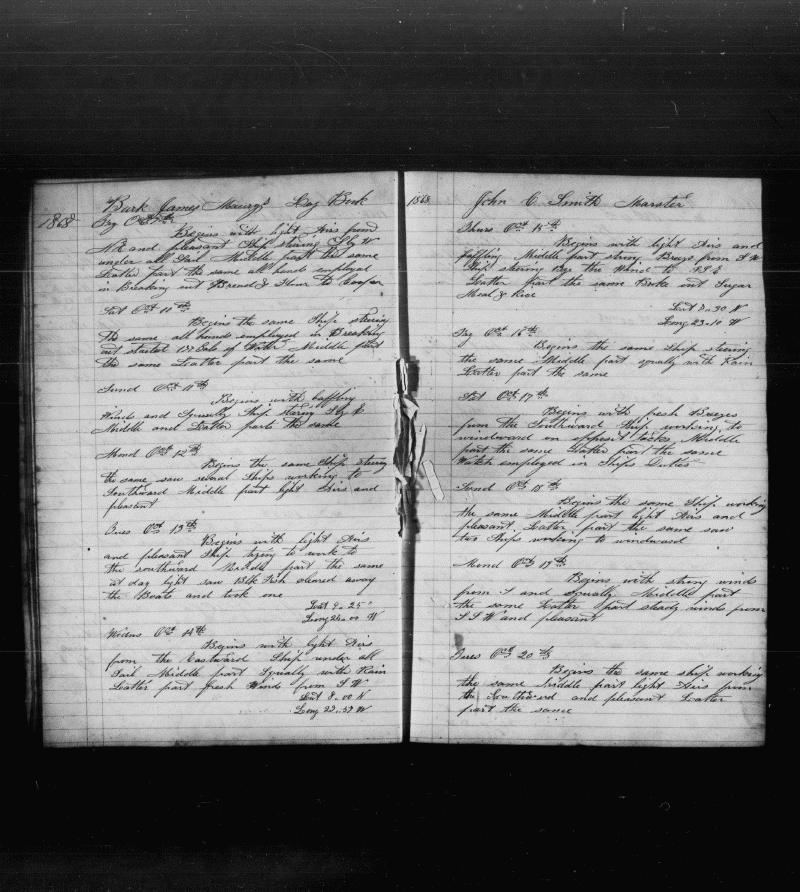 1868
Bark James Maury's Log Book
Fry Oct 9th
Begins with light Airs from
NE and pleasant Ship stering S by W
under all Sail Middle part the same
Latter part the same all hands employed
in Breaking out Bread & Flour to Cooper
Sat Oct 10th
Begins the same Ship stering
the same all hands employed in Breaking
out started Bbls of Water Middle part
the same Latter part the same
Sund Oct 11th
Begins with baffling
Winds and Squally Ship stering S by E
Middle and Latter parts the same
Mond Oct 12th
Begins the same Ship stering
the same saw several Ships working to
Southward Middle part light Airs and
pleasant
Tues Oct 13th
Begins with light Airs
and pleasant Ship trying to work to
the southward Middle part the same
at day light saw Blk Fish cleared away
the Boats and took one
Latt 9-25"
Long 24-00 W
Wedns Oct 14th
Begins with light Airs
from the Eastward Ship under all
Sail Middle part Squally with Rain
Latter part fresh Winds from S W
Latt 8-00 N
Long 23-57 W
1868
John C Smith Marster
Thurs Oct 15th
Begins with light Airs and
baffling Middle part strong Breezes from S W
Ship stering Bye the Wind to S S E
Latter part the same Broke out Sugar
Meal & Rice
Latt 7-30 N
Long 23-10 W
Fry Oct 16th
Begins the same Ship stering
the same Middle part squally with Rain
Latter part the same
Sat Oct 17th
Begins with fresh Breezes
from the Southward Ship working to
windward on opposit tacks Middle
part the same Latter part the same
Watch employed in Ships Duties
Sund Oct 18th
Begins the same Ship working
the same Middle part light Airs and
pleasant Latter part the same saw
two Ships working to windward
Mond Oct 19th
Begins with strong winds
from S and Squally Middle part
the same Latter part steady winds from
S S W and pleasant
Tues Oct 20th
Begins the same ship working
the same Middle part light Airs from
the Southward and pleasant Latter
part the same